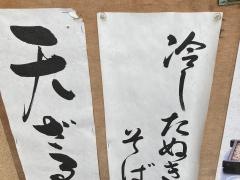 冷したぬき
そば
天ざる